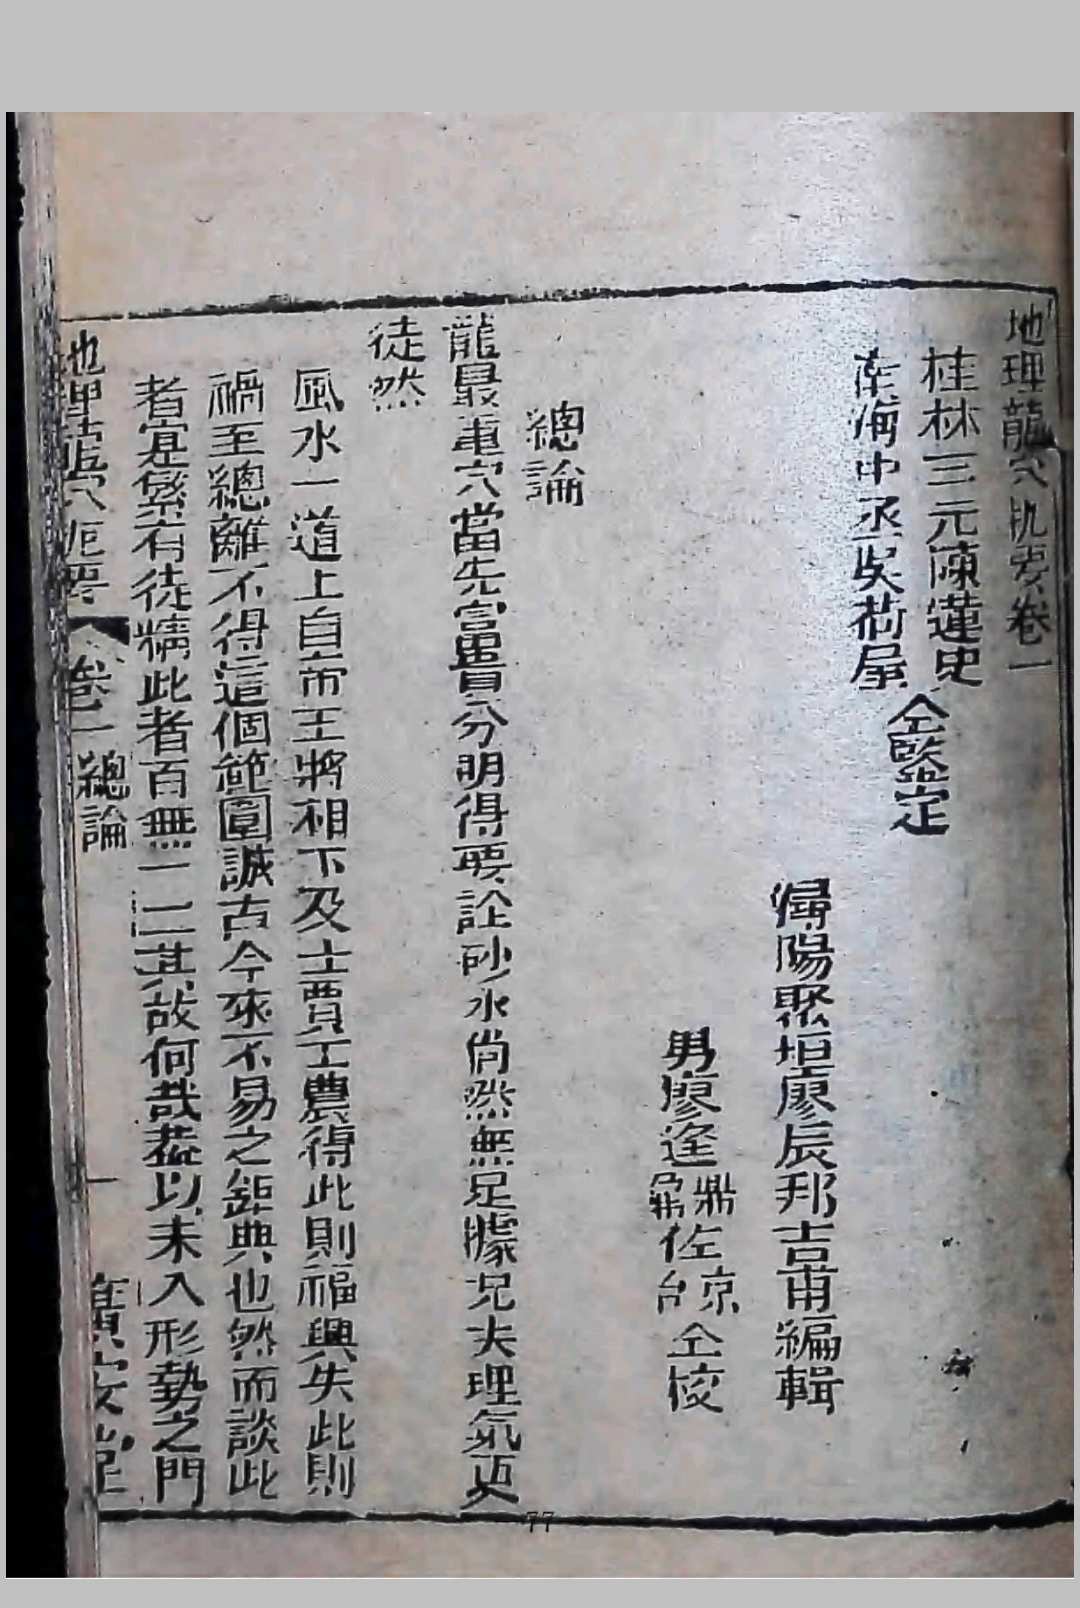 地理龍穴扼要卷一
桂林三元陳蓮史
南海中丞吳荷屋
仝鑒定
潯陽聚垣廖辰邦吉甫編輯
男廖逢鼎佐京
鼐 台
仝校
總論
龍最重穴當先富貴分明得要訟砂水尙然無足據况夫理氣更
徒然
風水一道上自帝王將相下及士賈工農得此則福興失此則
禍至總離不得這個範圍誠古今來不易之鉅典也然而談此
者寔繁有徒精此者百無一二其故何哉蓋以未入形勢之門
地理龍穴扼要 卷一 總論 一
77